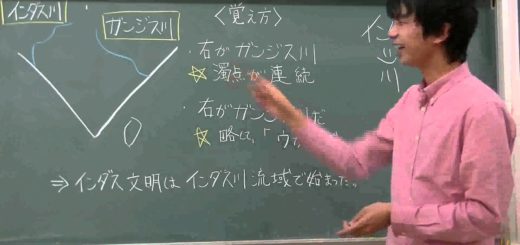 インダス川
ガンジス川
〈覚え方〉
・右がガンジス川
☆濁点が連続
・右がガン
だ
☆略して、「ウ
⇒インダス文明はインダス川流域で始まった。
イン
川